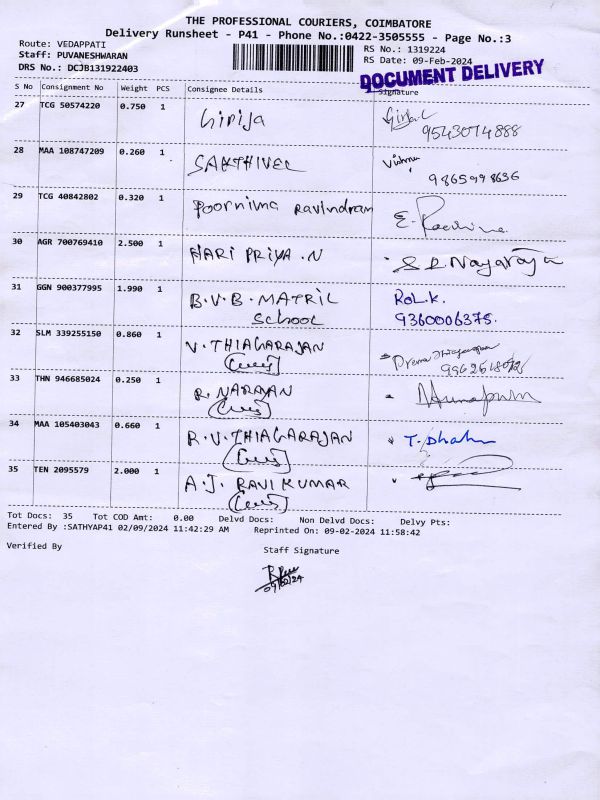 THE PROFESSIONAL COURIERS, COIMBATORE
Delivery Runsheet - P41 - Phone No.:0422-3505555 - Page No.:3
Route: VEDAPPATI
Staff: PUVANESHWARAN
DRS No.: DCJB131922403
RS No.: 1319224
RS Date: 09-Feb-2024
DOCUMENT DELIVERY
S No Consignment No Weight PCS Consignee Details Signature
27 TCG 50574220 0.750 1 Girija
28 MAA 108747209 0.260 1 SAKTHIVEL 9865998636
29 TCG 40842802 0.320 1 Poornima Ravindram
30 AGR 700769410 2.500 1 HARI PRIYA .N
31 GGN 900377995 1.990 1 B.V.B. MATRIL
School
9360006375.
32 SLM 339255150 0.860 1 V. THIAGARAJAN
33 THN 946685024 0.250 1 R. NARAYAN
34 MAA 105403043 0.660 1 R.V. THIAGARAJAN
35 TEN 2095579 2.000 1 A.J. RAVI KUMAR
Tot Docs: 35 Tot COD Amt: 0.00 Delvd Docs: Non Delvd Docs: Delvy Pts:
Entered By :SATHYAP41 02/09/2024 11:42:29 AM Reprinted On: 09-02-2024 11:58:42
Verified By
Staff Signature
09/02/24